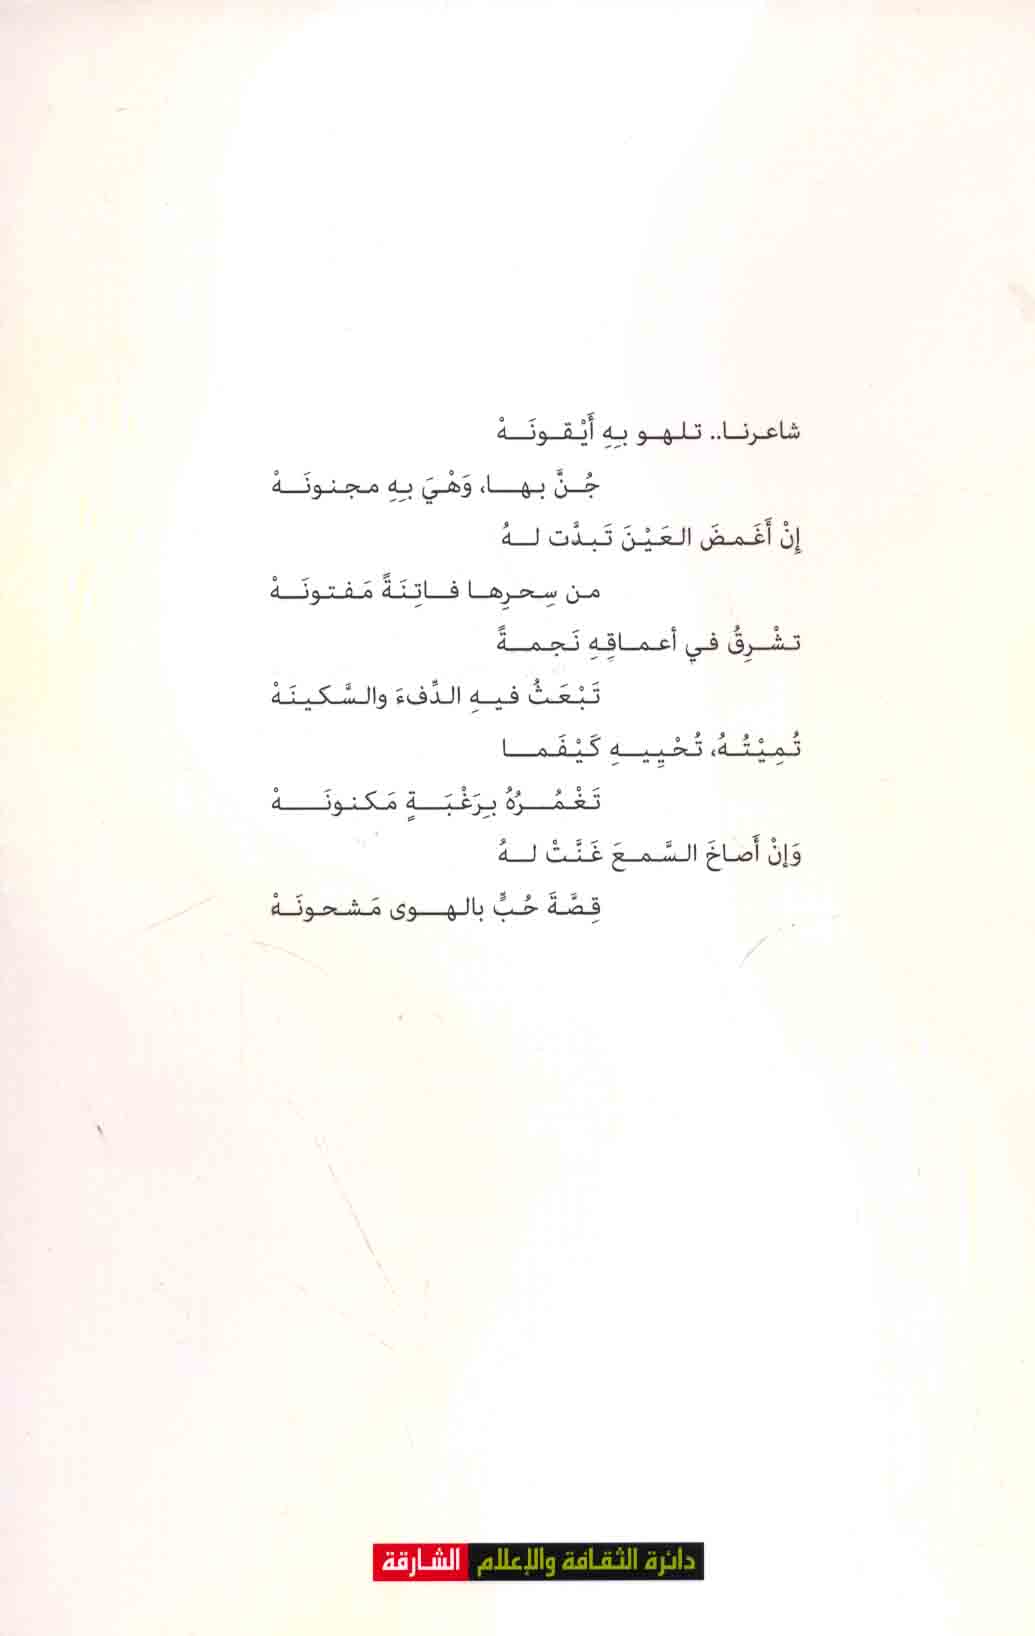 شاعرنا.. تلهو بِهِ أَيْقونَهْ
جُنَّ بها، وَهْيَ بِهِ مجنونَهْ
إِنْ أَغَمضَ العَيْنَ تَبدَّت لهُ
من سِحرِها فاتِنَةً مَفتونَهْ
تشْرِقُ في أعماقِهِ نَجمةً
تَبْعَثُ فيهِ الدِّفءَ والسَّكينَهْ
تُمِيْتُهُ، تُحْيِيهِ كَيْفَما
تَغْمُرُهُ بِرَغْبَةٍ مَكنونَهْ
وَإنْ أَصاخَ السَّمعَ غَنَّتْ لهُ
قِصَّةَ حُبٍّ بالهوى مَشحونَهْ
دائرة الثقافة والإعلام الشارقة